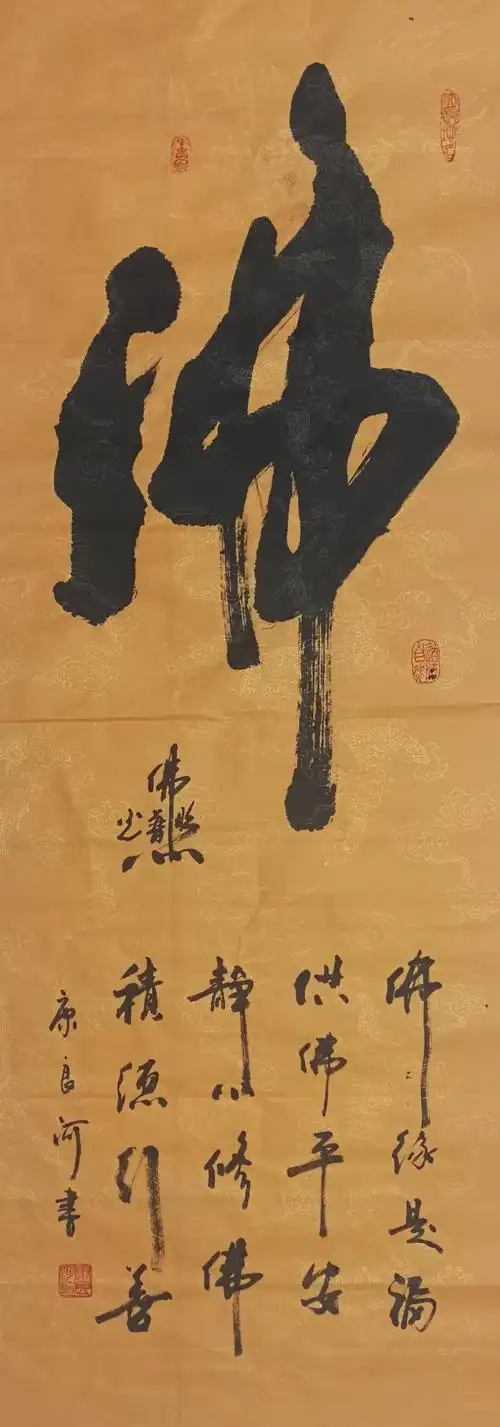 佛
佛光普照
佛缘是福
供佛平安
静心修佛
積德行善
康良河書